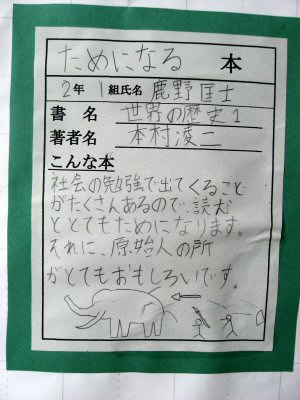 ためになる 本
2年 1組氏名 鹿野匡士
書名 世界の歴史1
著者名 本村凌二
こんな本
社会の勉強で出てくること
がたくさんあるので、読む
ととてもためになります。
それに、原始人の所
がとてもおもしろいです。